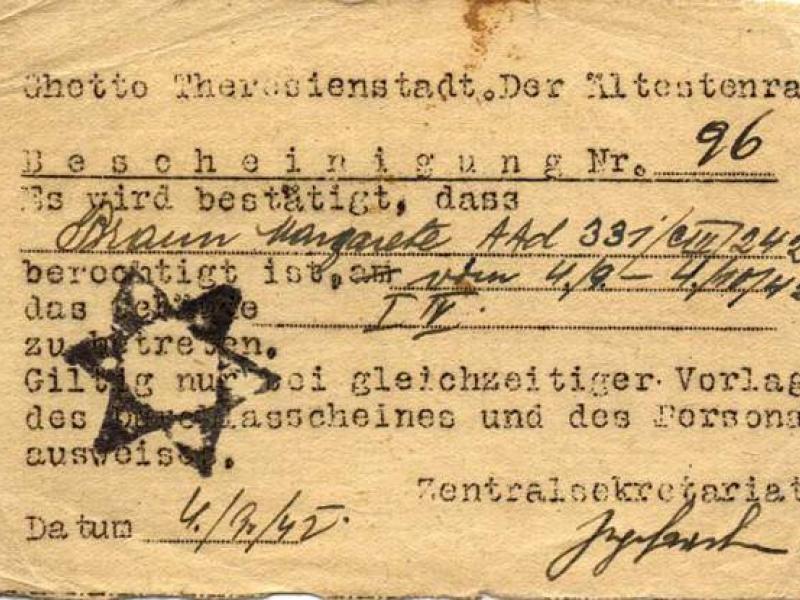 Ghetto Theresienstadt.Der Ältestenra
Bescheinigung Nr. 96
Es wird bestätigt, dass
Braun Margarete AAd 331/CIII/242
berechtigt ist, am vom 4./9. – 4./10/42
das Gebäude I IV.
zu betreten.
Giltig nur bei gleichzeitiger Vorlag
des Durchlasscheines und des Persons
ausweises.
Zentralsekretariat
Datum 4./9./42.